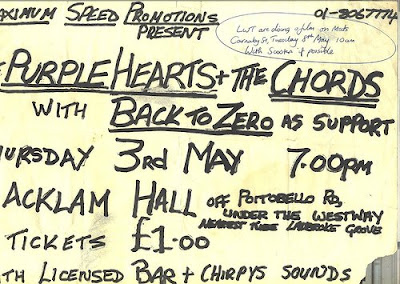 AXIMUM SPEED PROMOTIONS
PRESENT
01-8067774
LWT are doing a film on Mods
Carnaby St, Tuesday 8th May 10am
With Scooters if possible
E PURPLE HEARTS + THE CHORDS
WITH BACK TO ZERO AS SUPPORT
HURSDAY 3RD MAY 7.00PM
ACKLAM HALL OFF PORTOBELLO RD,
UNDER THE WESTWAY
NEAREST TUBE LADBROKE GROVE
TICKETS £1.00
TH LICENSED BAR + CHIRPYS SOUNDS